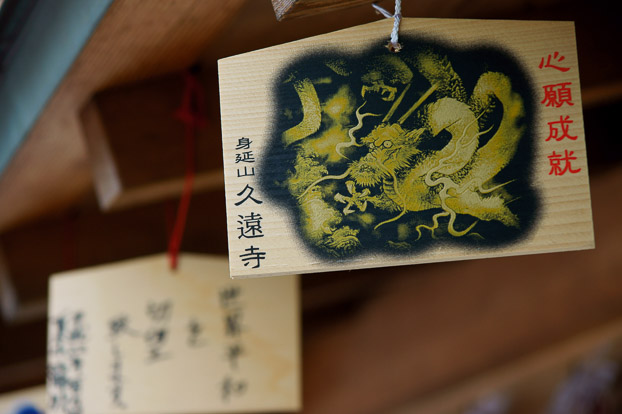 心願成就
身延山
久遠寺
世界平和
を
切望